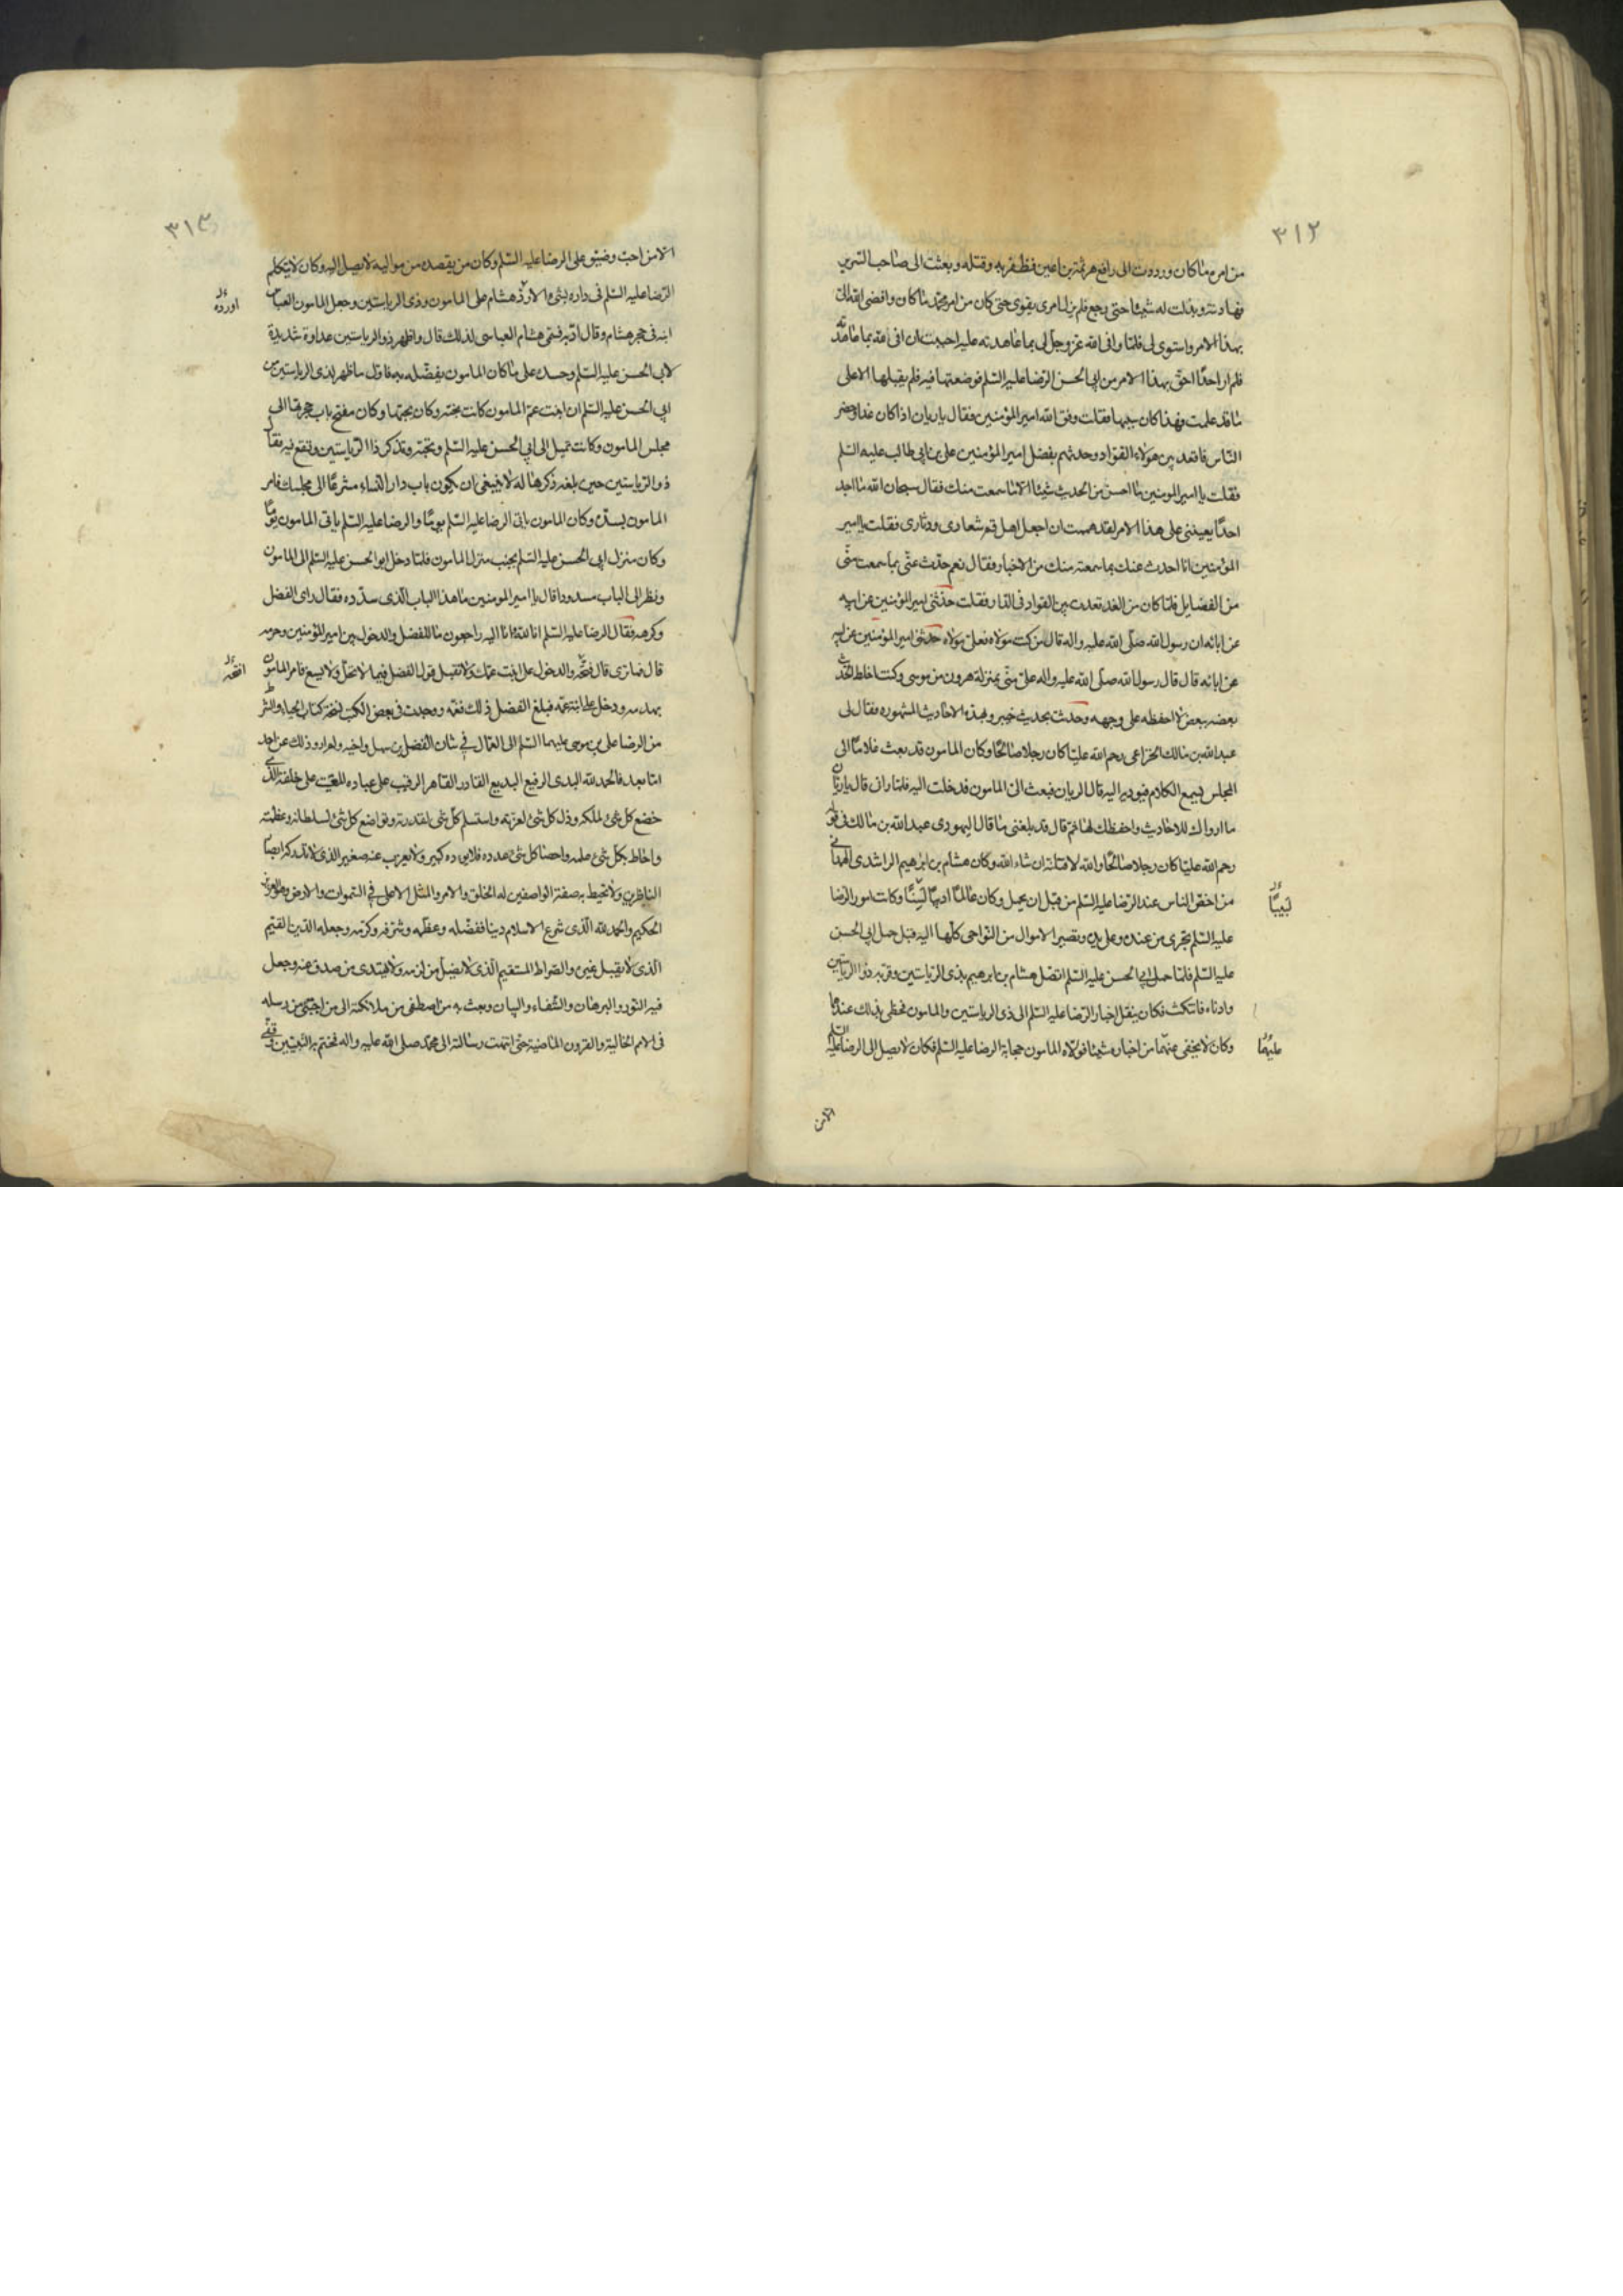 ٣١٢
من امره ما كان ورددت الى رافع هرثمة بن اعين فظفر به وقتله وبعثت الى صاحب السرير
فهادنته وبذلت له شيئا حتى رجع فلم يزل امرى يقوى حتى كان من امر محمد ما كان وافضى الله الى
بهذا الامر واستوى لى فلما وافى الله عز وجل لى بما عاهدته عليه احببت ان افى لله بما عاهدته
فلم ار احدًا احق بهذا الامر من ابى الحسن الرضا عليه السلم فوضعتها فيه فلم يقبلها الا على
ما قد علمت فهذا كان سببها فقلت وفق الله امير المؤمنين فقال يا ريان اذا كان غدا وحضر
الناس فاقعد بين هولاء القواد وحدثهم بفضل امير المؤمنين على بن ابى طالب عليه السلم
فقلت يا امير المومنين ما احسن من الحديث شيئا الا ما سمعت منك فقال سبحان الله ما اجد
احدًا يعيننى على هذا الامر لقد هممت ان اجعل اهل قم شعارى ودثارى فقلت يا امير
المؤمنين انا احدث عنك بما سمعته منك من الاخبار فقال نعم حدث عنى بما سمعت منى
من الفضايل فلما كان من الغد قعدت بين القواد فى الدار فقلت حدثنى امير المؤمنين عن ابيه
عن ابائه ان رسول الله صلى الله عليه واله قال من كنت مولاه فعلى مولاه حدثنى امير المؤمنين عن ابيه
عن ابائه قال قال رسول الله صلى الله عليه واله على منى بمنزلة هرون من موسى وكنت اخلط الحديث
بعضه ببعض لا احفظه على وجهه وحدثت بحديث خيبر وبهذه الاحاديث المشهوره فقال لى
عبد الله بن مالك الخزاعى رحم الله عليًا كان رجلا صالحًا وكان المامون قد بعث غلامًا الى
المجلس يسمع الكلام فيوديه اليه قال الريان فبعث الى المامون فدخلت اليه فلما رانى قال يا ريان
ما ارواك للاحاديث واحفظك لها ثم قال قد بلغنى ما قال اليهودى عبد الله بن مالك فى قوله
رحم الله عليًا كان رجلا صالحًا والله لاقتلنه ان شاء الله وكان هشام بن ابرهيم الراشدى الهمدانى
من اخص الناس عند الرضا عليه السلم من قبل ان يحمل وكان عالمًا اديبًا لبيبًا وكانت امور الرضا
لبيبًا
عليه السلم تجرى من عنده وعلى يده وتصير الاموال من النواحى كلها اليه قبل حمل ابى الحسن
عليه السلم فلما حمل ابى الحسن عليه السلم اتصل هشام بن ابرهيم بذى الرياستين وقربه ذو الرياستين
وادناه فكان ينقل اخبار الرضا عليه السلم الى ذى الرياستين والمامون فحظى بذلك عندهما
وكان لا يخفى عنهما من اخباره شيئا فولاه المامون حجابة الرضا عليه السلم فكان لا يصل الى الرضا عليه السلم
عليهما
الا من
٣١٣
الا من احب وضيق على الرضا عليه السلم وكان من يقصده من مواليه لا يصل اليه وكان لا يتكلم
الرضا عليه السلم فى داره بشئ الا ورد هشام على المامون وذى الرياستين وجعل المامون العباس
اورده
ابنه فى حجر هشام وقال ادبه فسمى هشام العباسى لذلك قال واظهر ذو الرياستين عداوة شديدة
لابى الحسن عليه السلم وحسده على ما كان المامون يفضله به فاول ما ظهر لذى الرياستين من
ابى الحسن عليه السلم ان ابنت عم المامون كانت تحبه وكان يحبها وكان مفتح باب حجرتها الى
مجلس المامون وكانت تميل الى ابى الحسن عليه السلم وتحبه وتذكر ذا الرياستين وتقع فيه فقال
ذو الرياستين حين بلغه ذكرها له لا ينبغى ان يكون باب دار النساء مشرعًا الى مجلسك فامر
المامون بسده وكان المامون ياتى الرضا عليه السلم يومًا والرضا عليه السلم ياتى المامون يومًا
وكان منزل ابى الحسن عليه السلم بجنب منزل المامون فلما دخل ابو الحسن عليه السلم الى المامون
ونظر الى الباب مسدودا قال يا امير المومنين ما هذا الباب الذى سددته فقال راى الفضل
وكرهه فقال الرضا عليه السلم انا لله وانا اليه راجعون ما للفضل والدخول بين امير المؤمنين وحرمه
قال فما ترى قال فتحه والدخول على ابنت عمك ولا تقبل قول الفضل فيما لا يحل ولا يسع فامر المامون
افتحه
بهدمه ودخل على ابنة عمه فبلغ الفضل ذلك فغمه ووجدت فى بعض الكتب نسخة كتاب الحباء والشرط
من الرضا على بن موسى عليهما السلم الى العمال فى شان الفضل بن سهل واخيه ولم ارو ذلك عن احد
اما بعد فالحمد لله البدى الرفيع البديع القادر القاهر الرقيب على عباده المقيت على خلقه الذى
خضع كل شئ لملكه وذل كل شئ لعزته واستسلم كل شئ لقدرته وتواضع كل شئ لسلطانه وعظمته
واحاط بكل شئ علمه واحصا كل شئ عدده فلا يؤده كبير ولا يعزب عنه صغير الذى لا تدركه ابصار
الناظرين ولا تحيط به صفة الواصفين له الخلق والامر والمثل الاعلى فى السموات والارض وهو العزيز
الحكيم والحمد لله الذى شرع الاسلام دينا ففضله وعظمه وشرفه وكرمه وجعله الدين القيم
الذى لا يقبل غيره والصراط المستقيم الذى لا يضل من لزمه ولا يهتدى من صدف عنه وجعل
فيه النور والبرهان والشفاء والبيان وبعث به من اصطفى من ملائكته الى من اجتبى من رسله
فى الامم الخالية والقرون الماضية حتى انتهت رسالته الى محمد صلى الله عليه واله فختم به النبيين وقفى